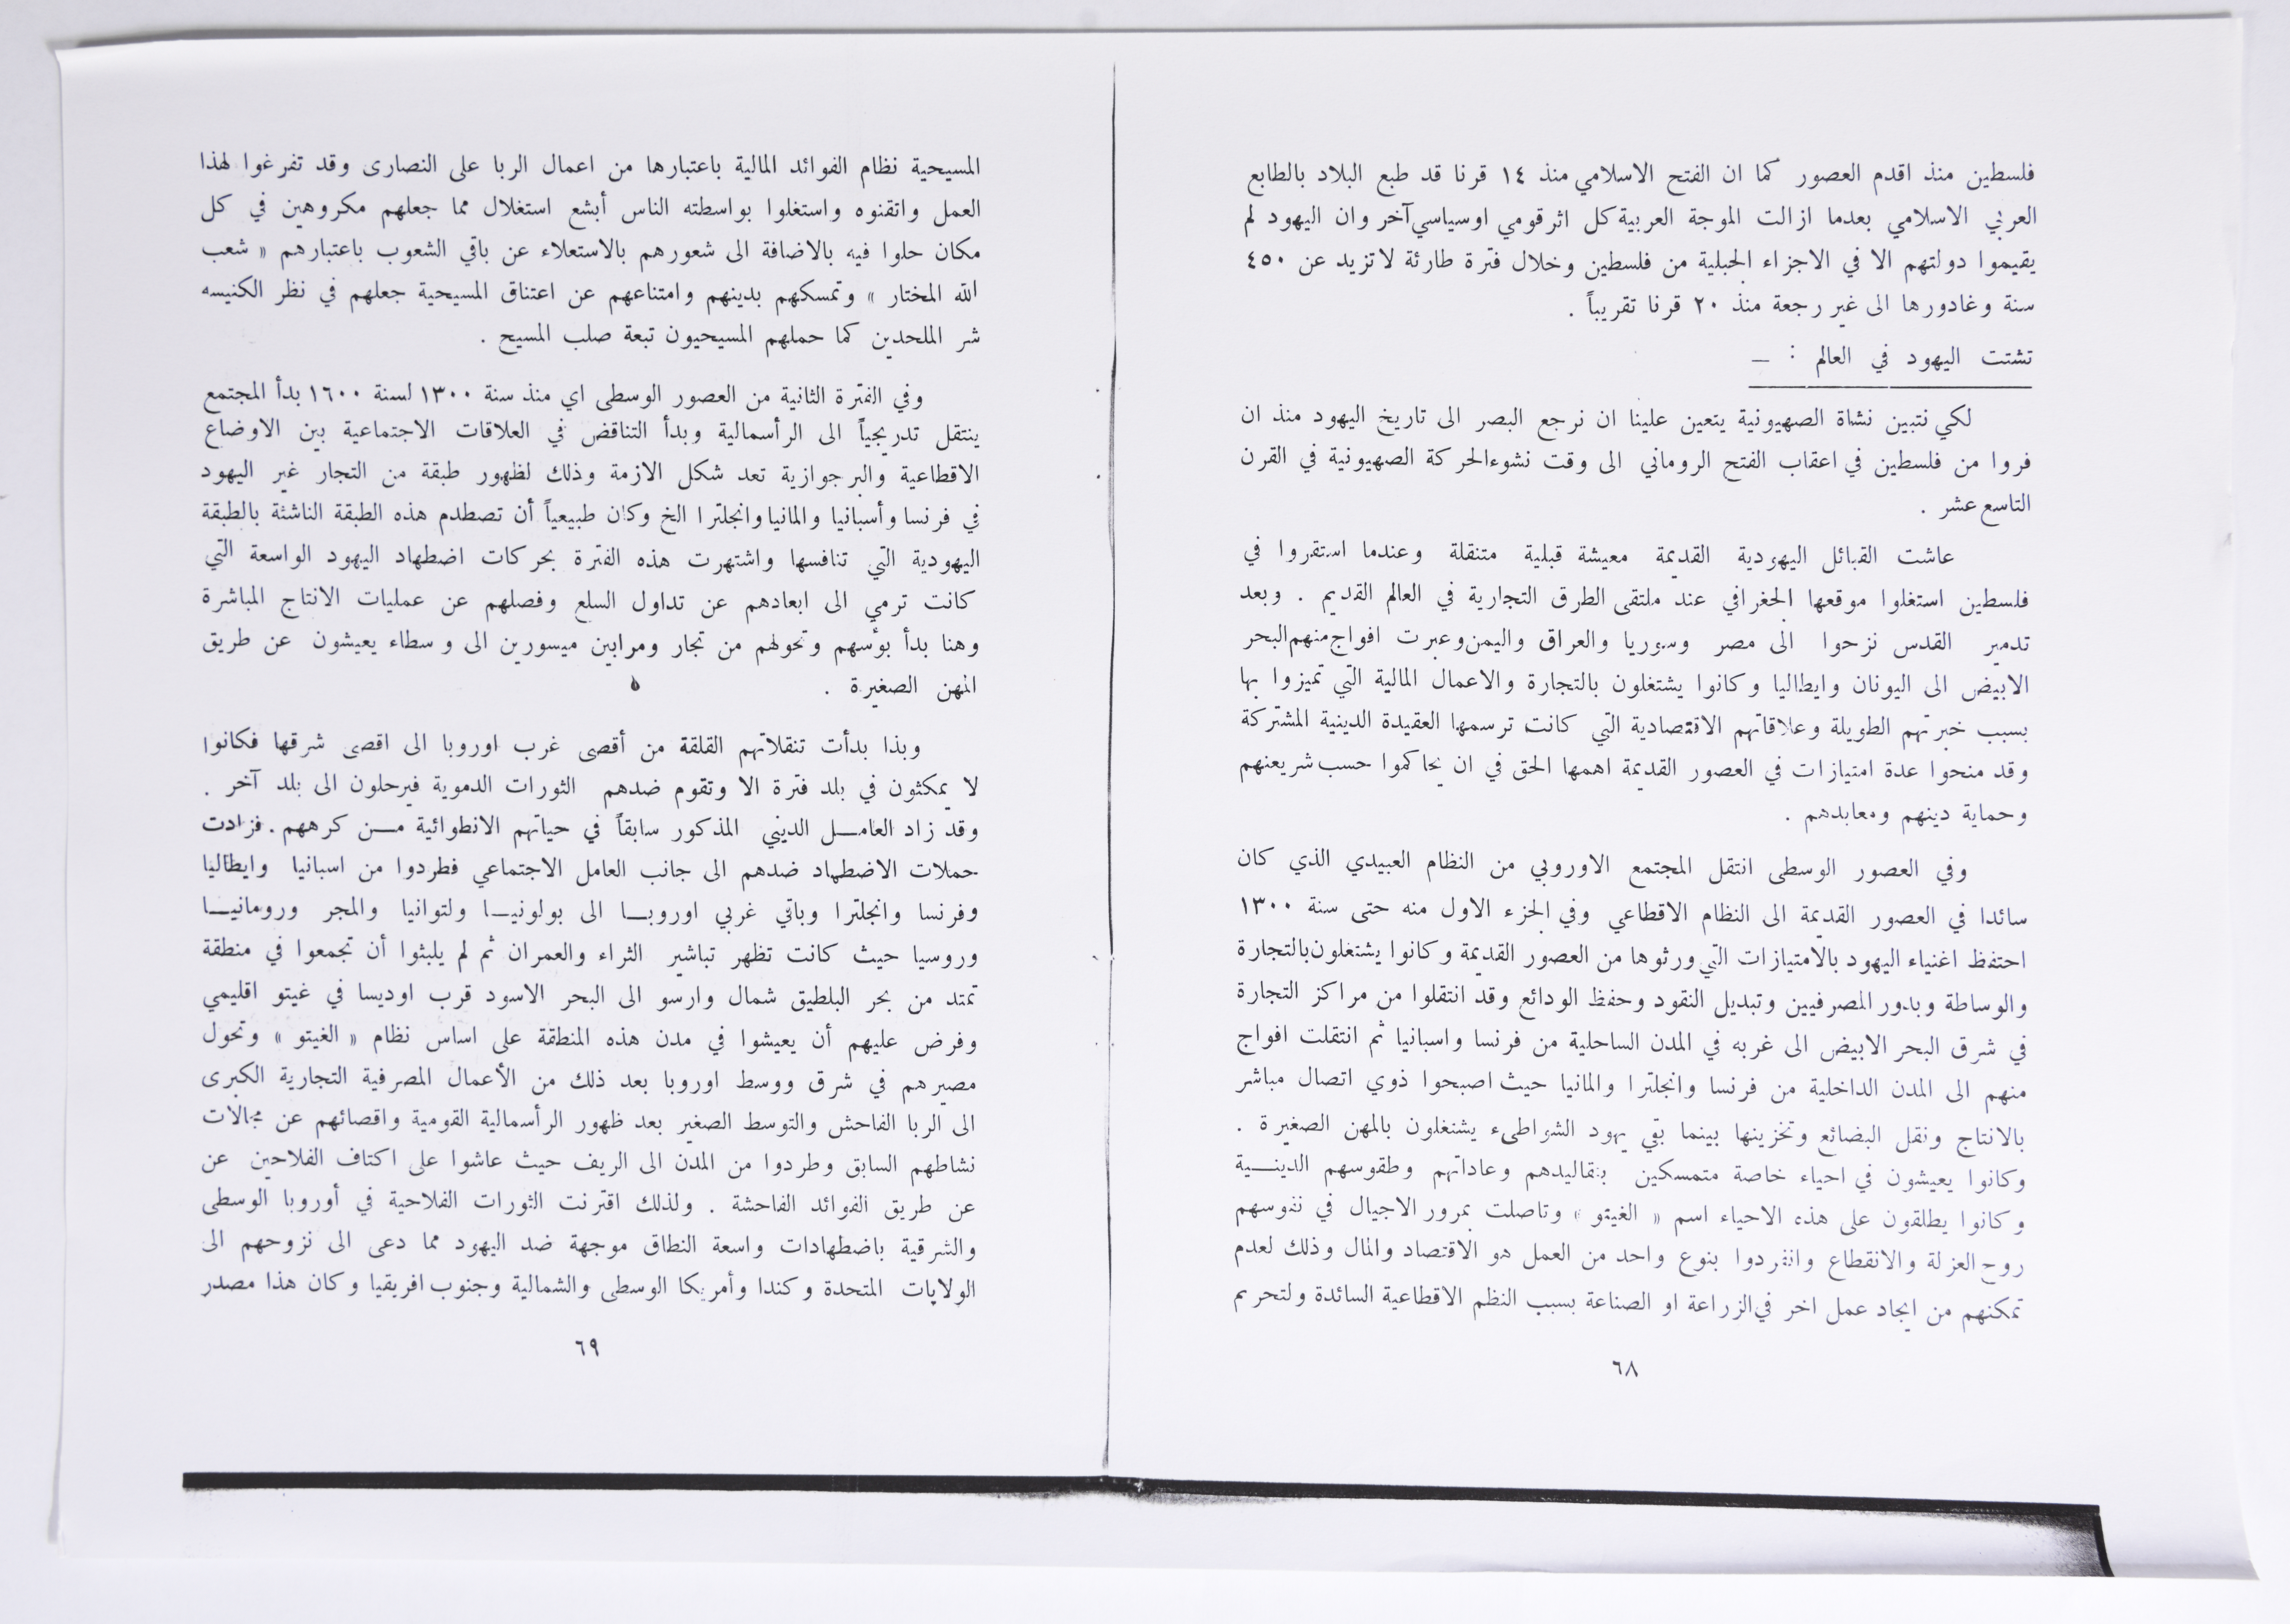 فلسطين منذ اقدم العصور كما ان الفتح الاسلامي منذ ١٤ قرنا قد طبع البلاد بالطابع
العربي الاسلامي بعدما ازالت الموجة العربية كل اثر قومي او سياسي آخر وان اليهود لم
يقيموا دولتهم الا في الاجزاء الجبلية من فلسطين وخلال فترة طارئة لا تزيد عن ٤٥٠
سنة وغادورها الى غير رجعة منذ ٢٠ قرنا تقريباً .
تشتت اليهود في العالم : —
لكي نتبين نشاة الصهيونية يتعين علينا ان نرجع البصر الى تاريخ اليهود منذ ان
فروا من فلسطين في اعقاب الفتح الروماني الى وقت نشوء الحركة الصهيونية في القرن
التاسع عشر .
عاشت القبائل اليهودية القديمة معيشة قبلية متنقلة وعندما استقروا في
فلسطين استغلوا موقعها الجغرافي عند ملتقى الطرق التجارية في العالم القديم . وبعد
تدمير القدس نزحوا الى مصر وسوريا والعراق واليمن وعبرت افواج منهم البحر
الابيض الى اليونان وايطاليا وكانوا يشتغلون بالتجارة والاعمال المالية التي تميزوا بها
بسبب خبرتهم الطويلة وعلاقاتهم الاقتصادية التي كانت ترسمها العقيدة الدينية المشتركة
وقد منحوا عدة امتيازات في العصور القديمة اهمها الحق في ان يحاكموا حسب شريعتهم
وحماية دينهم ومعابدهم .
وفي العصور الوسطى انتقل المجتمع الاوروبي من النظام العبيدي الذي كان
سائدا في العصور القديمة الى النظام الاقطاعي وفي الجزء الاول منه حتى سنة ١٣٠٠
احتفظ اغنياء اليهود بالامتيازات التي ورثوها من العصور القديمة وكانوا يشتغلون بالتجارة
والوساطة وبدور المصرفيين وتبديل النقود وحفظ الودائع وقد انتقلوا من مراكز التجارة
في شرق البحر الابيض الى غربه في المدن الساحلية من فرنسا واسبانيا ثم انتقلت افواج
منهم الى المدن الداخلية من فرنسا وانجلترا والمانيا حيث اصبحوا ذوي اتصال مباشر
بالانتاج ونقل البضائع وتخزينها بينما بقي يهود الشواطىء يشتغلون بالمهن الصغيرة .
وكانوا يعيشون في احياء خاصة متمسكين بتقاليدهم وعاداتهم وطقوسهم الدينـــية
وكانوا يطلقون على هذه الاحياء اسم « الغيتو » وتاصلت بمرور الاجيال في نفوسهم
روح العزلة والانقطاع وانفردوا بنوع واحد من العمل هو الاقتصاد والمال وذلك لعدم
تمكنهم من ايجاد عمل اخر في الزراعة او الصناعة بسبب النظم الاقطاعية السائدة ولتحريم
٦٨
المسيحية نظام الفوائد المالية باعتبارها من اعمال الربا على النصارى وقد تفرغوا لهذا
العمل واتقنوه واستغلوا بواسطته الناس أبشع استغلال مما جعلهم مكروهين في كل
مكان حلوا فيه بالاضافة الى شعورهم بالاستعلاء عن باقي الشعوب باعتبارهم « شعب
الله المختار » وتمسكهم بدينهم وامتناعهم عن اعتناق المسيحية جعلهم في نظر الكنيسه
شر الملحدين كما حملهم المسيحيون تبعة صلب المسيح .
وفي الفترة الثانية من العصور الوسطى اي منذ سنة ١٣٠٠ لسنة ١٦٠٠ بدأ المجتمع
ينتقل تدريجياً الى الرأسمالية وبدأ التناقض في العلاقات الاجتماعية بين الاوضاع
الاقطاعية والبرجوازية تعد شكل الازمة وذلك لظهور طبقة من التجار غير اليهود
في فرنسا وأسبانيا والمانيا وانجلترا الخ وكان طبيعياً أن تصطدم هذه الطبقة الناشئة بالطبقة
اليهودية التي تنافسها واشتهرت هذه الفترة بحركات اضطهاد اليهود الواسعة التي
كانت ترمي الى ابعادهم عن تداول السلع وفصلهم عن عمليات الانتاج المباشرة
وهنا بدأ بؤسهم وتحولهم من تجار ومرابين ميسورين الى وسطاء يعيشون عن طريق
المهن الصغيرة .
وبذا بدأت تنقلاتهم القلقة من أقصى غرب اوروبا الى اقصى شرقها فكانوا
لا يمكثون في بلد فترة الا وتقوم ضدهم الثورات الدموية فيرحلون الى بلد آخر .
وقد زاد العامـــل الديني المذكور سابقاً في حياتهم الانطوائية مـــن كرههم . فزادت
حملات الاضطهاد ضدهم الى جانب العامل الاجتماعي فطردوا من اسبانيا وايطاليا
وفرنسا وانجلترا وباقي غربي اوروبـــا الى بولونيـــا ولتوانيا والمجر ورومانيـــا
وروسيا حيث كانت تظهر تباشير الثراء والعمران ثم لم يلبثوا أن تجمعوا في منطقة
تمتد من بحر البلطيق شمال وارسو الى البحر الاسود قرب اوديسا في غيتو اقليمي
وفرض عليهم أن يعيشوا في مدن هذه المنطقة على اساس نظام « الغيتو » وتحول
مصيرهم في شرق ووسط اوروبا بعد ذلك من الأعمال المصرفية التجارية الكبرى
الى الربا الفاحش والتوسط الصغير بعد ظهور الرأسمالية القومية واقصائهم عن مجالات
نشاطهم السابق وطردوا من المدن الى الريف حيث عاشوا على اكتاف الفلاحين عن
عن طريق الفوائد الفاحشة . ولذلك اقترنت الثورات الفلاحية في أوروبا الوسطى
والشرقية باضطهادات واسعة النطاق موجهة ضد اليهود مما دعى الى نزوحهم الى
الولايات المتحدة وكندا وأمريكا الوسطى والشمالية وجنوب افريقيا وكان هذا مصدر
٦٩